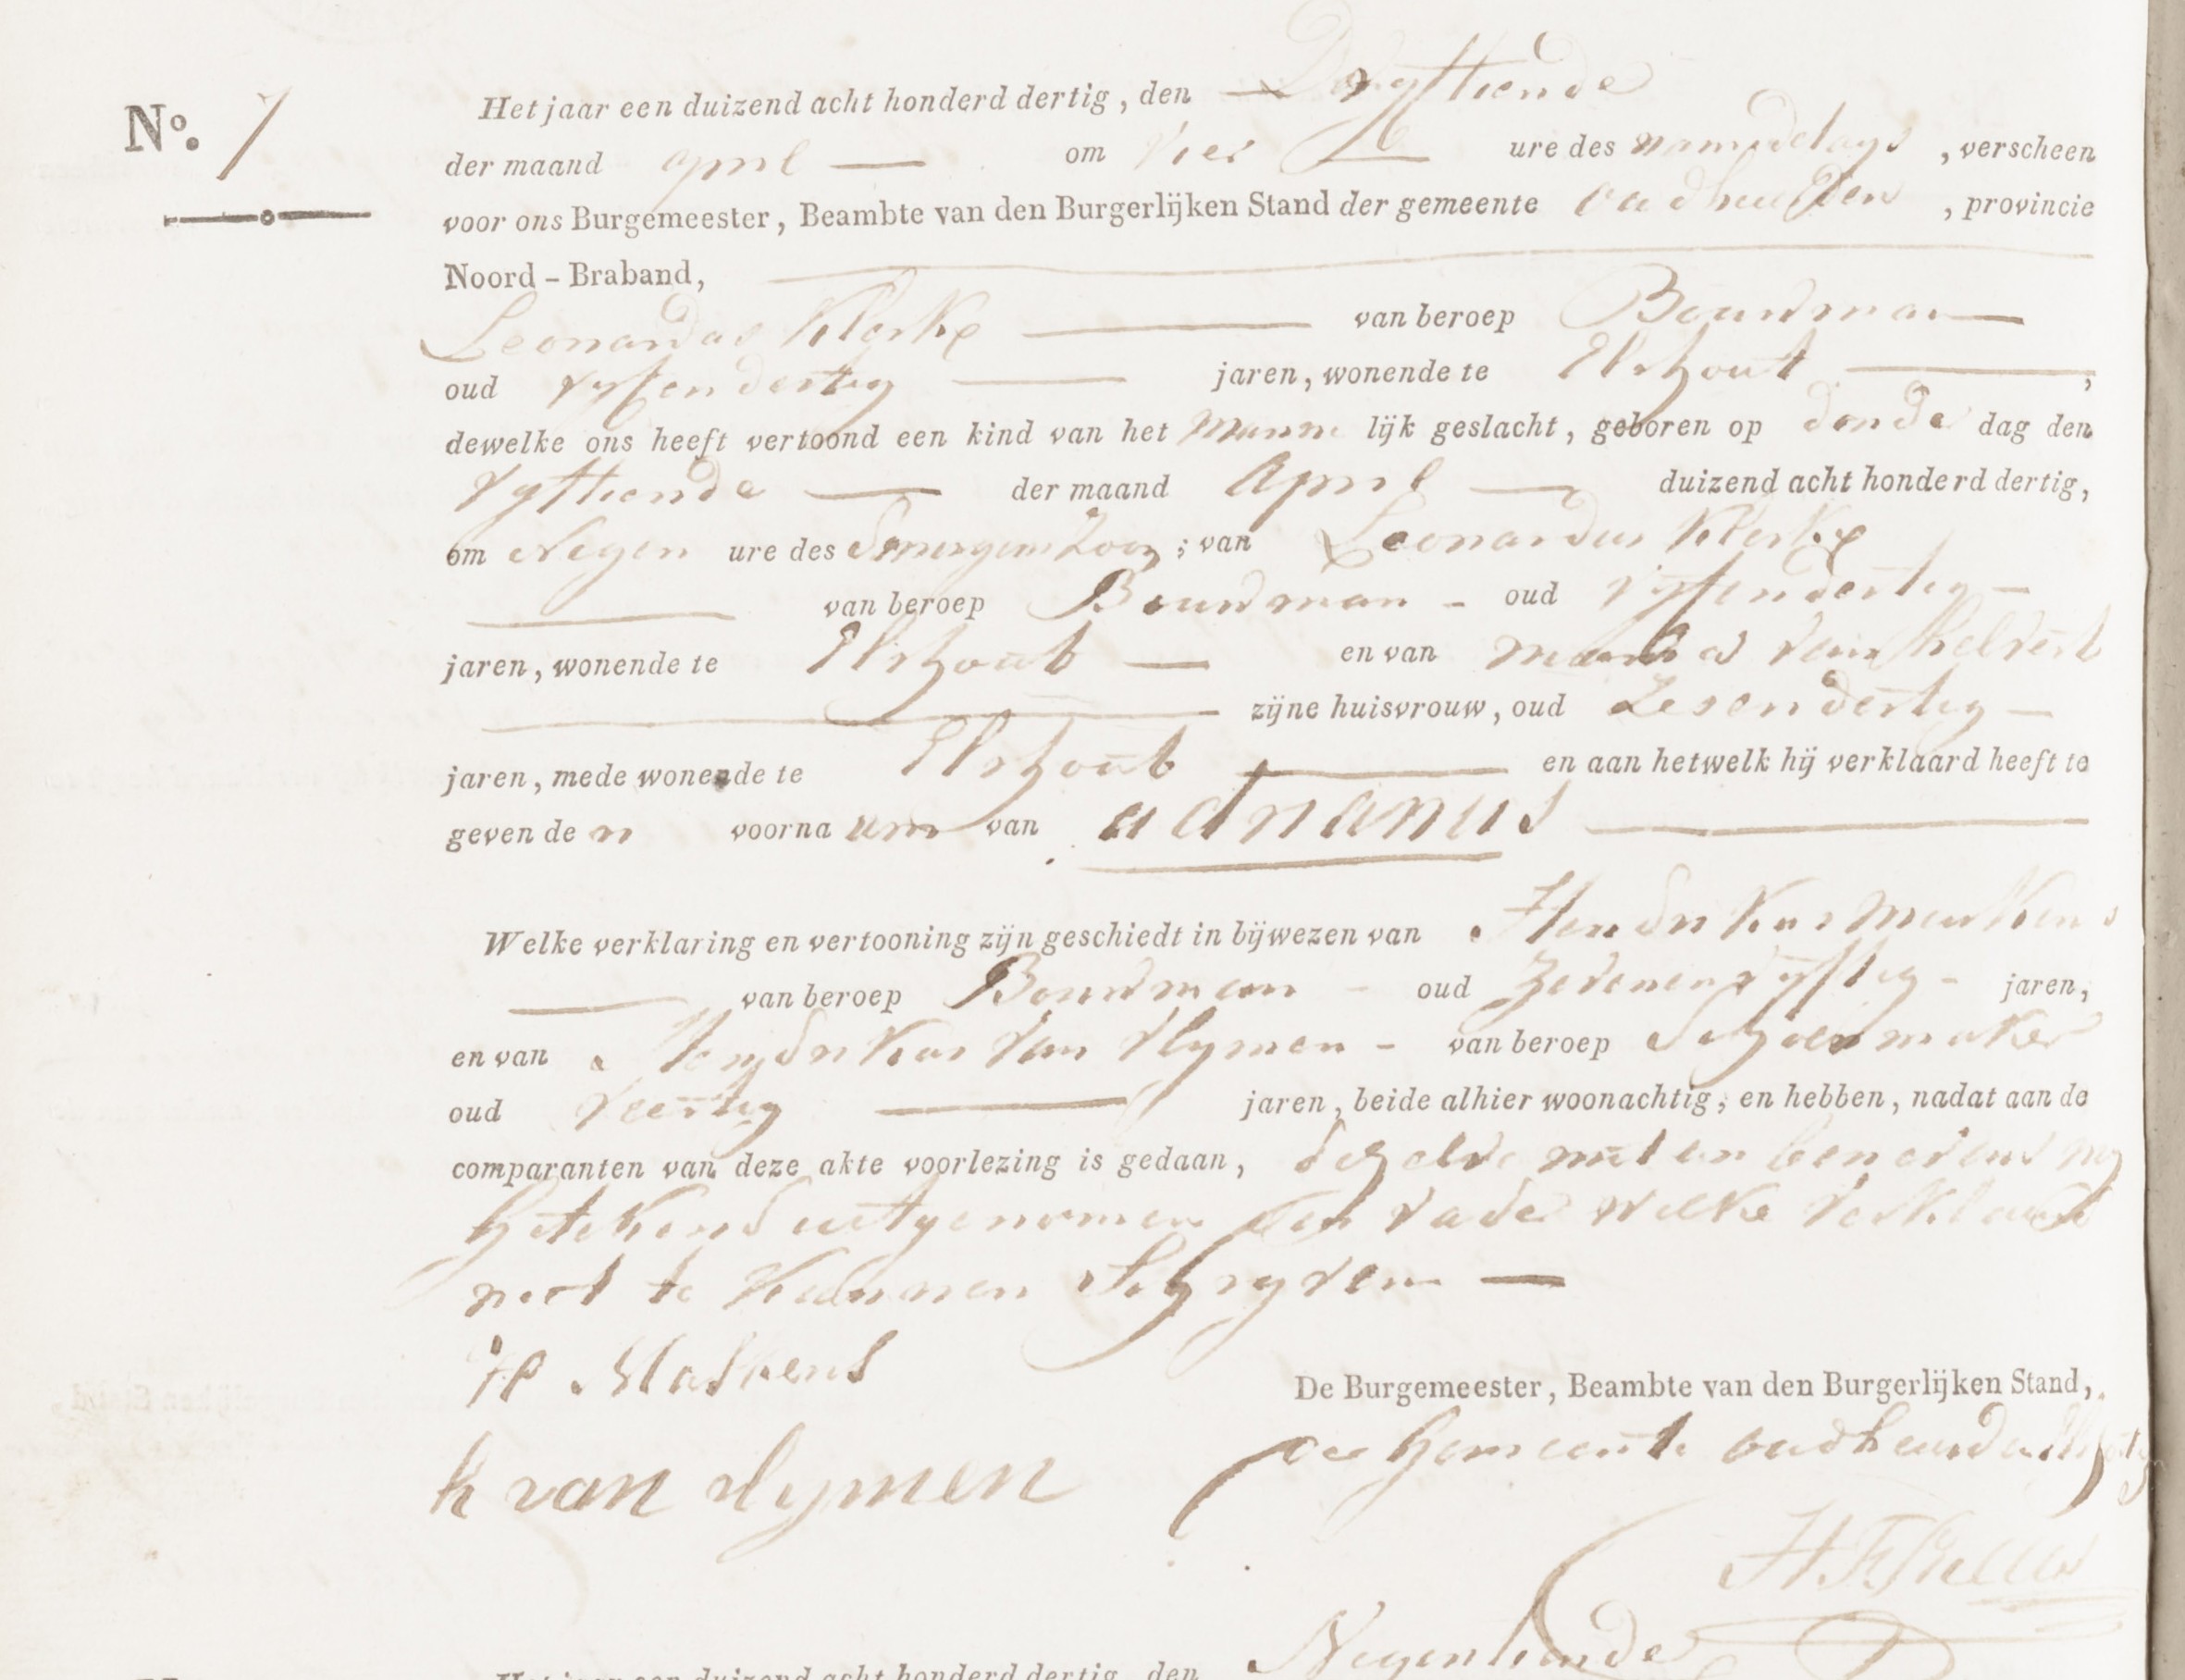 No. 7
Het jaar een duizend acht honderd dertig, den Vyftiende
der maand april om vier ure des namiddags, verscheen
voor ons Burgemeester, Beambte van den Burgerlijken Stand der gemeente oudheusden, provincie
Noord-Braband,
Leonardus Klerkx van beroep Bouwman
oud vyfendertig jaren, wonende te Elshout,
dewelke ons heeft vertoond een kind van het manne lijk geslacht, geboren op donde dag den
vyftiende der maand April duizend acht honderd dertig,
om Negen ure des Smorgens ; van Leonardus Klerkx
van beroep Bouwman oud vyfendertig
jaren, wonende te Elshout en van maria van helvert
zijne huisvrouw, oud Zesendertig
jaren, mede wonende te Elshout en aan hetwelk hij verklaard heeft te
geven de n voorna am van adrianus
Welke verklaring en vertooning zijn geschiedt in bijwezen van Hendrikus
van beroep Bouwman oud Zevenenvyftig jaren,
en van Hendrikus van Slymen van beroep Schoenmaker
oud veertig jaren, beide alhier woonachtig; en hebben, nadat aan de
comparanten van deze akte voorlezing is gedaan, dezelve met en benevens my
Getekend uitgenomen den vader welke verklaard
niet te kunnen Schryven
H
h van slymen
De Burgemeester, Beambte van den Burgerlijken Stand,
der Gemeente oudheusden
Negentiende
Het jaar een duizend acht honderd dertig, den